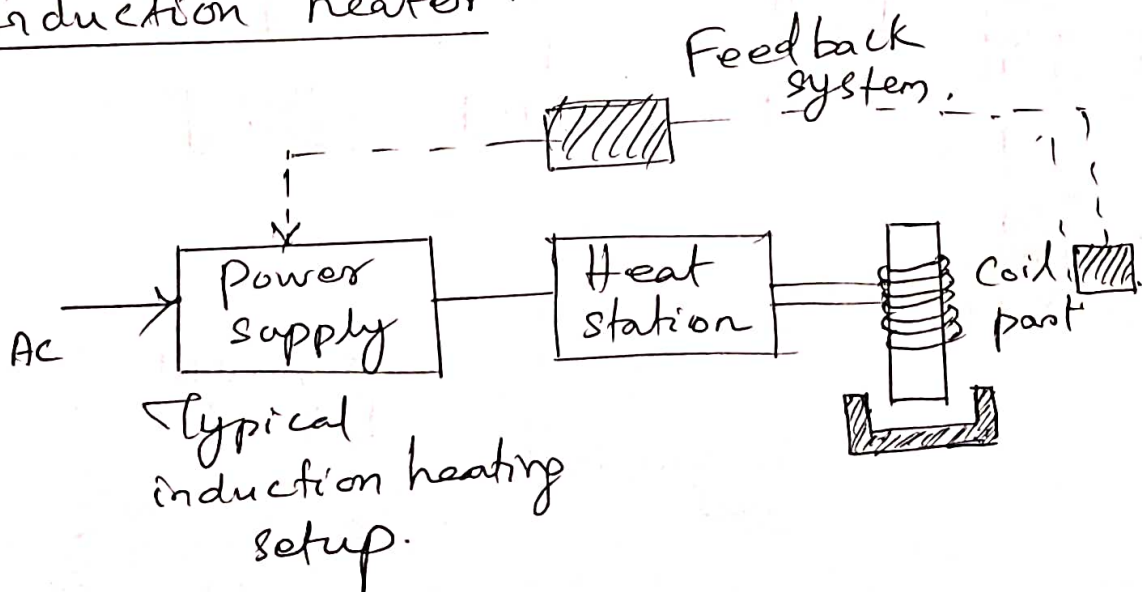 induction heater
Feedback
system.
AC
Power
supply
Heat
station
Coil
part
Typical
induction heating
setup.